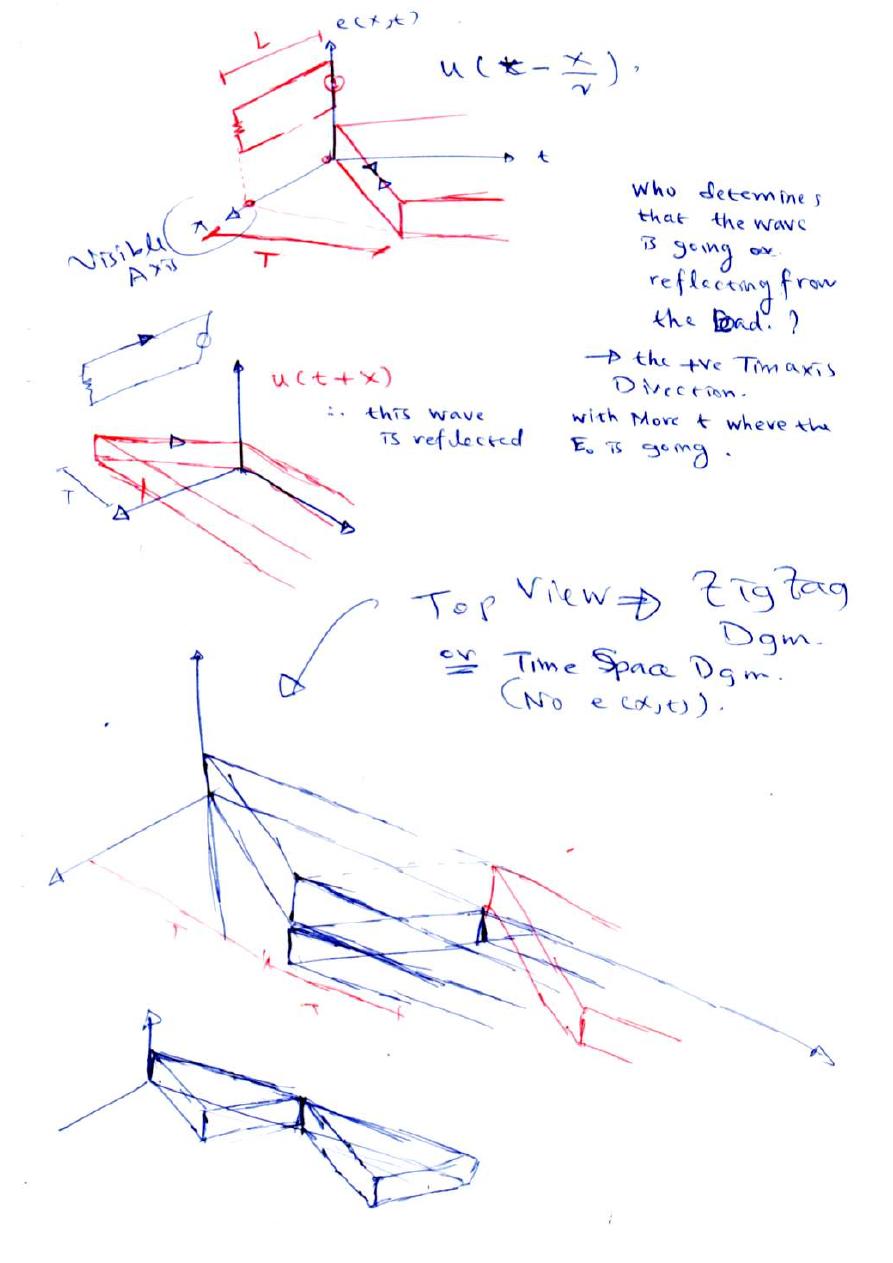 e(x,t)
L
u(t - x/v).
t
Visible
Axis
T
Who determines
that the wave
is going or
reflecting from
the load.?
→ the +ve Tim axis
Direction.
with More t where the
E₀ is going.
u(t+x)
∴ this wave
is reflected
T
Top View ⇒ ZigZag
Dgm.
or Time Space Dgm.
(No e(x,t)).
T
T